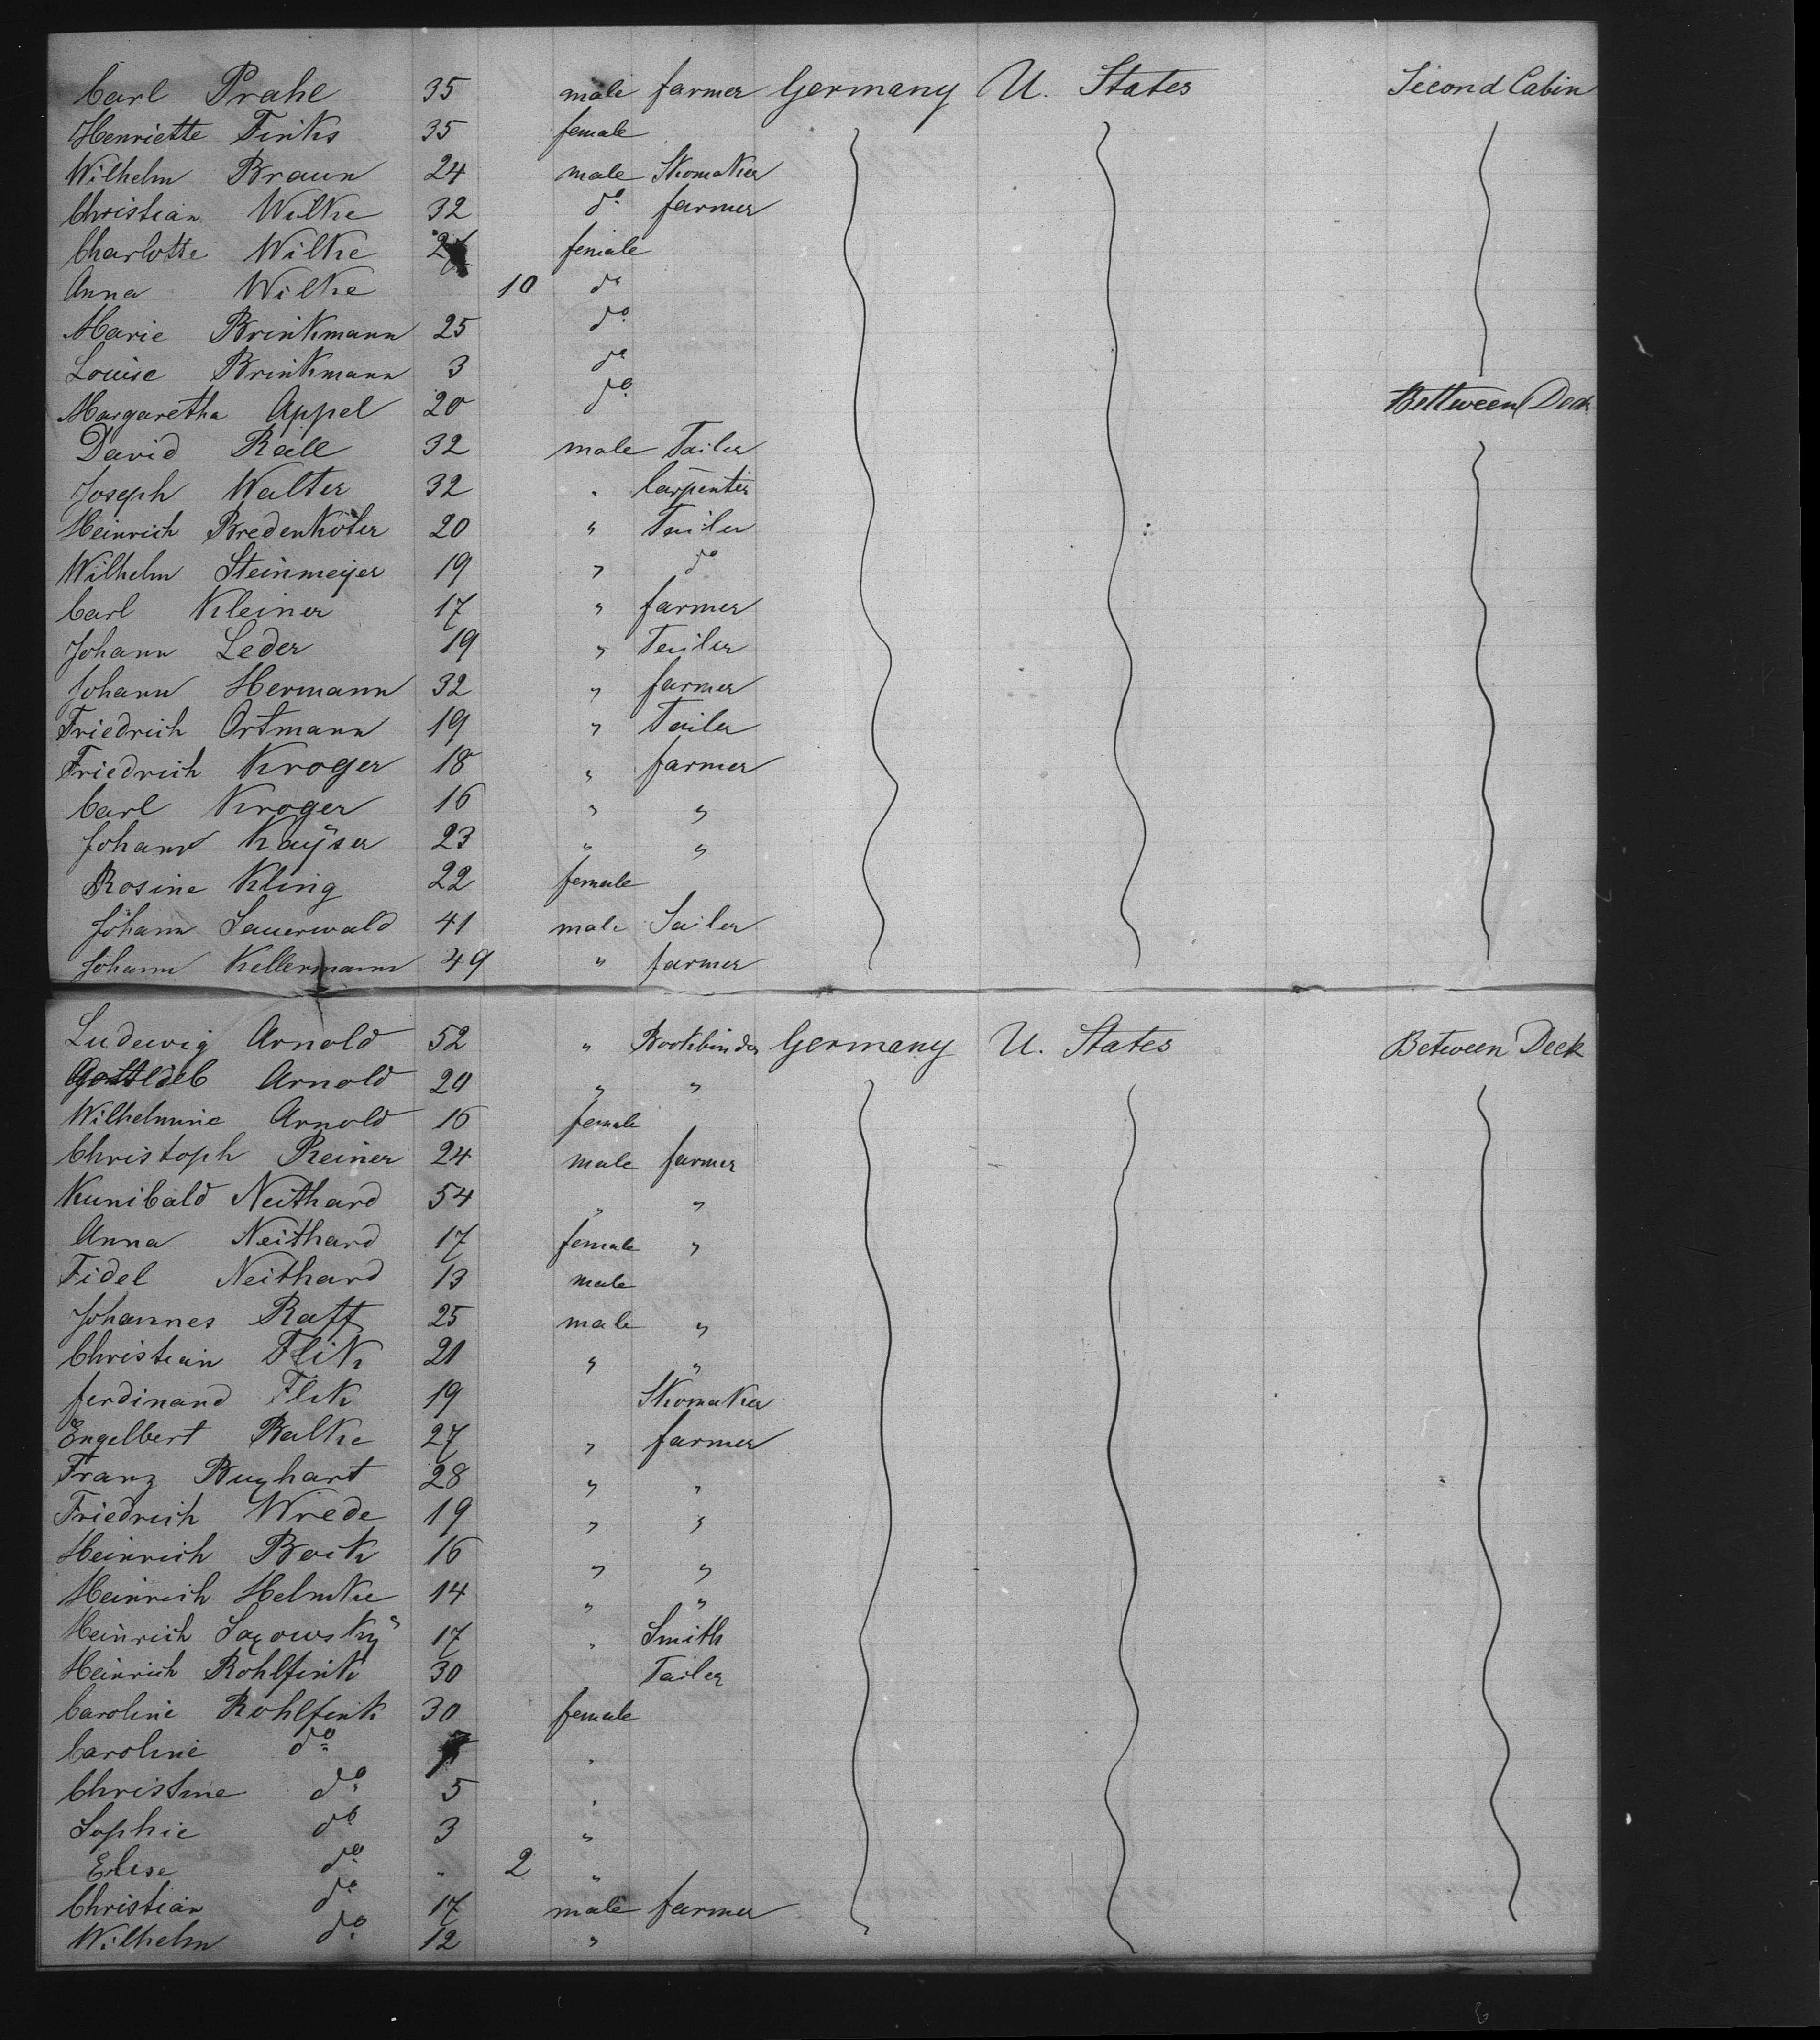 Carl Prahl 35 male farmer Germany U. States Second Cabin
Henriette Finks 35 female
Wilhelm Braun 24 male Shomaker
Christian Wilke 32 do farmer
Charlotte Wilke female
Anna Wilke 10 do
Marie Brinkmann 25 do
Louise Brinkmann 3 do
Margaretha Appel 20 do Bettween Deck
David Rall 32 male Tailer
Joseph Walter 32 " Carpenter
Heinrich Bredenköter 20 " Tailer
Wilhelm Steinmeijer 19 " do
Carl Kleiner 17 " farmer
Johann Leder 19 " Tailer
Johann Hermann 32 " farmer
Friedrich Ortmann 19 " Tailer
Friedrich Kroger 18 " farmer
Carl Kroger 16 " "
Johann Kaÿser 23 " "
Rosine Kling 22 female
Johann Sauerwald 41 male Sailer
Johann Kellermann 49 " farmer
Ludewig Arnold 52 " Bookbinder Germany U. States Between Deck
Gottlieb Arnold 20 " "
Wilhelmine Arnold 16 female
Christoph Reiner 24 male farmer
Kunibald Neithard 54 " "
Anna Neithard 17 female "
Fidel Neithard 13 male
Johannes Raff 25 male "
Christian Flik 21 " "
ferdinand Flik 19 Shomaker
Engelbert Balke 27 " farmer
Franz 28 " "
Friedrich Wrede 19 " "
Heinrich Bock 16 " "
Heinrich Helmke 14 " "
Heinrich 17 " Smith
Heinrich Rohlfink 30 Tailer
Caroline Rohlfink 30 female
Caroline do "
Christine do 5 "
Sophie do 3 "
Elise do " 2 "
Christian do 17 male farmer
Wilhelm do 12 "